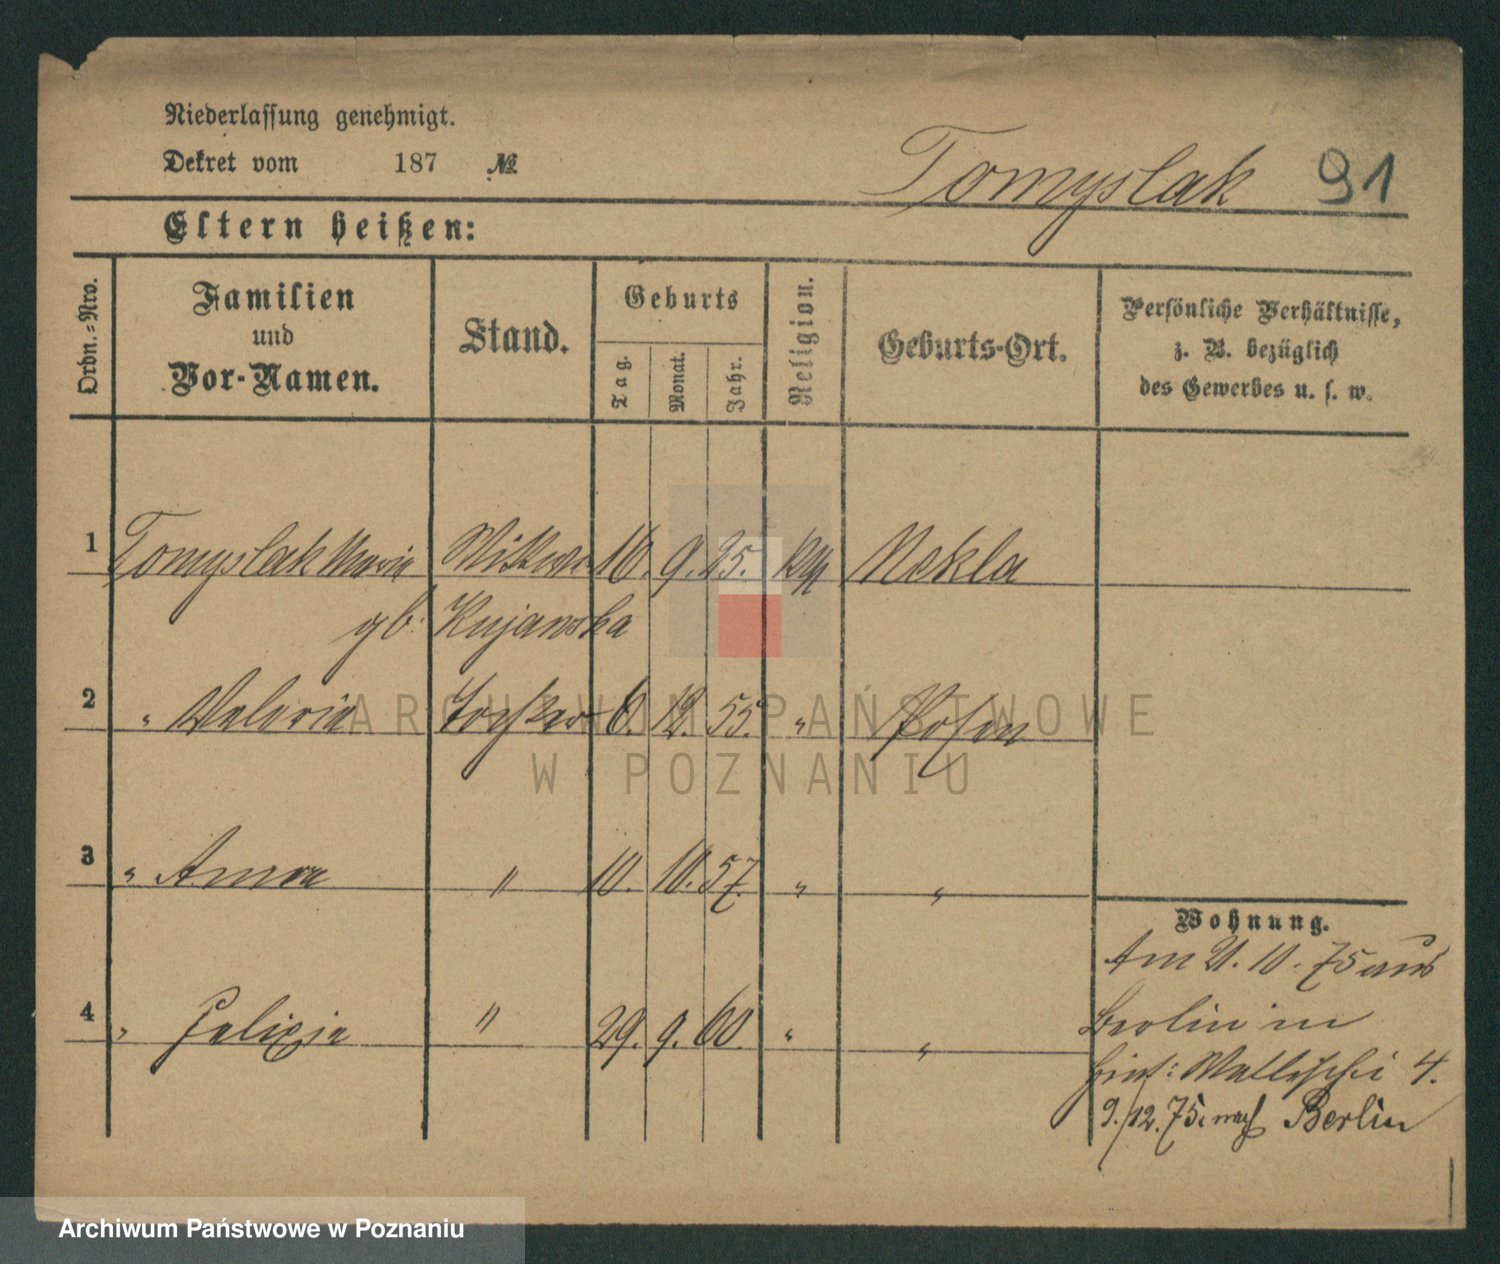 Niederlassung genehmigt.
Dekret vom 187 №
Tomyslak 91
Eltern heißen:
Ordn.-Nro.
Familien und Vor-Namen.
Stand.
Geburts
Tag.
Monat.
Jahr.
Religion.
Geburts-Ort.
Persönliche Verhältnisse,
z. B. bezüglich
des Gewerbes u. s. w.
1 Tomyslak Maria Wittwe 16. 9. 25. kth Nekla
gb. Kujawska
2 " Valeria Tochter 6. 12. 55. " Posen
3 " Anna " 10. 10. 57. " "
4 " Felixia " 29. 9. 60. " "
Wohnung.
Am 21. 10. 75 aus
Berlin in
Hint: Wallischei 4.
9./12. 75. nach Berlin
ARCHIWUM PAŃSTWOWE
W POZNANIU
Archiwum Państwowe w Poznaniu